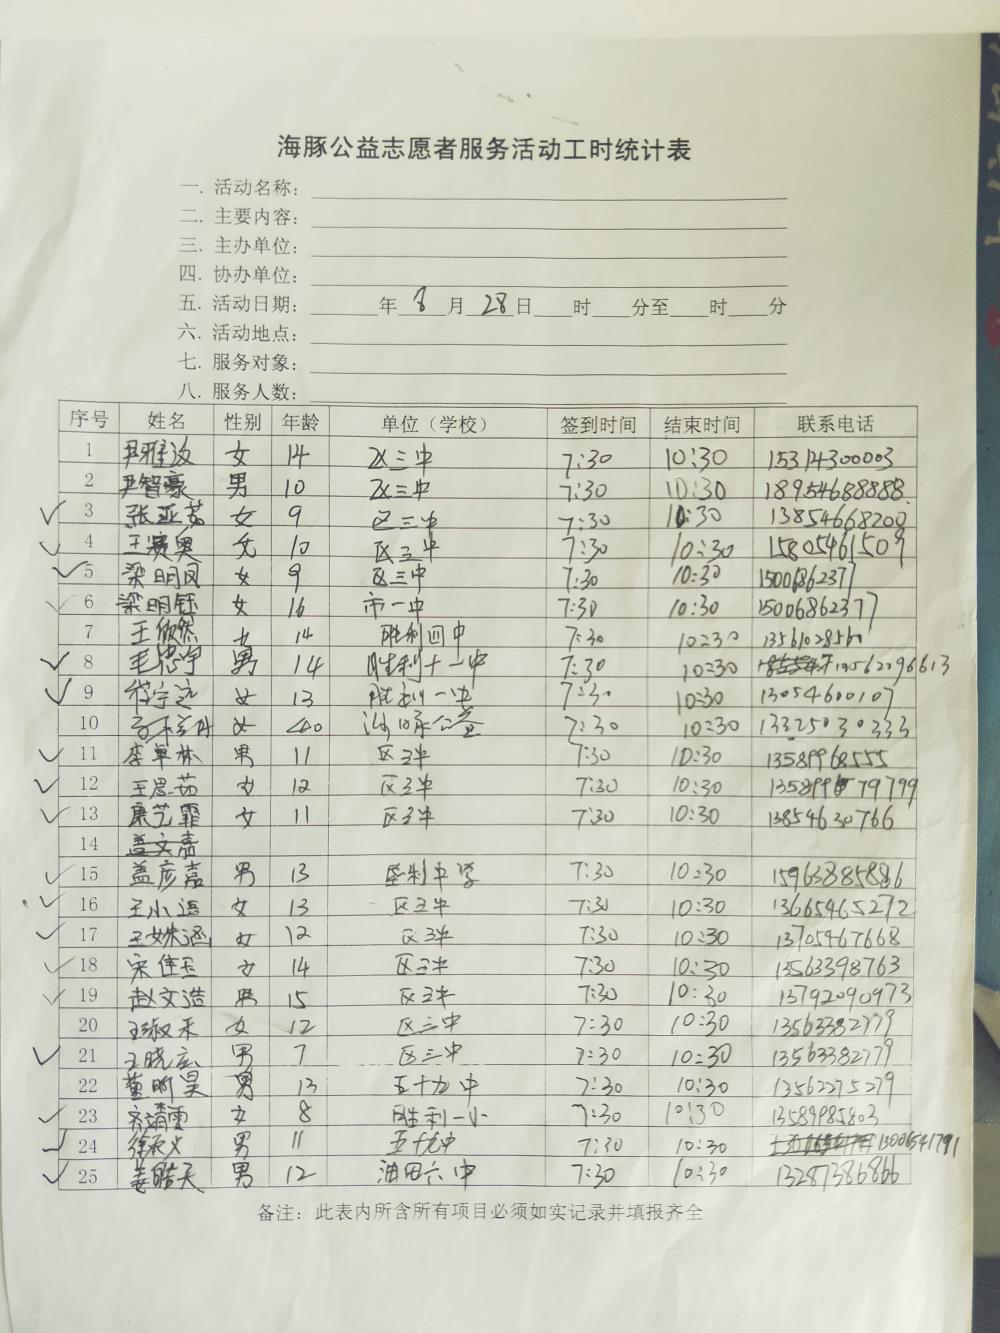 海豚公益志愿者服务活动工时统计表
一. 活动名称:
二. 主要内容:
三. 主办单位:
四. 协办单位:
五. 活动日期: 年 8 月 28 日 时 分至 时 分
六. 活动地点:
七. 服务对象:
八. 服务人数:
序号 姓名 性别 年龄 单位（学校） 签到时间 结束时间 联系电话
1 尹雅汝 女 14 区三中 7:30 10:30 15314300003
2 尹智豪 男 10 区三中 7:30 10:30 18954688888
3 张亚茹 女 9 区三中 7:30 10:30 13854668200
4 王赛奥 女 10 区三中 7:30 10:30 15805461509
5 梁明凤 女 9 区三中 7:30 10:30 15006862377
6 梁明钰 女 16 市一中 7:30 10:30 15006862377
7 王欣然 女 14 胜利四中 7:30 10:30 13561028560
8 毛 宇 男 14 胜利十一中 7:30 10:30 13562296613
9 宁远 女 13 胜利一中 7:30 10:30 13054600107
10 女 40 海豚公益 7:30 10:30 13325030333
11 李卓林 男 11 区三中 7:30 10:30 13589968555
12 王思茹 女 12 区三中 7:30 10:30 13589979799
13 康艺霏 女 11 区三中 7:30 10:30 13854630766
14 盖文嘉
15 盖彦嘉 男 13 胜利中学 7:30 10:30 15963885886
16 王小语 女 13 区三中 7:30 10:30 13665465272
17 王姝涵 女 12 区三中 7:30 10:30 13705467668
18 宋佳玉 女 14 区三中 7:30 10:30 13563398763
19 赵文浩 男 15 区三中 7:30 10:30 13792090973
20 王淑禾 女 12 区三中 7:30 10:30 13563382779
21 王晓宏 男 7 区三中 7:30 10:30 13563382779
22 董昕昊 男 13 五十九中 7:30 10:30 13562275279
23 齐靖雯 女 8 胜利一小 7:30 10:30 13589985803
24 徐天义 男 11 五十九中 7:30 10:30 13006541791
25 姜皓天 男 12 油田六中 7:30 10:30 13287386866
备注：此表内所含所有项目必须如实记录并填报齐全